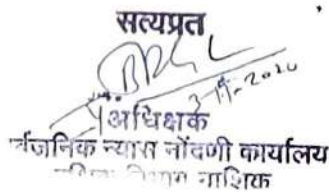 सत्यप्रत
3-11-2020
अधिक्षक
र्वजनिक न्यास नोंदणी कार्यालय
विभाग नाशिक